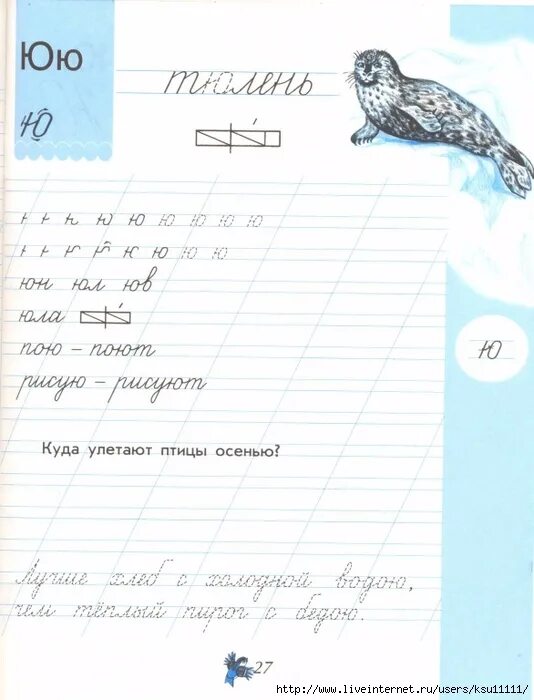 Юю
тюлень
ю
ю ю ю ю ю ю
ю ю ю ю
юн юл юв
юла
Ю
пою – поют
рисую – рисуют
Куда улетают птицы осенью?
Лучше хлеб с холодной водою,
чем тёплый пирог с бедою.
27
http://www.liveinternet.ru/users/ksu11111/